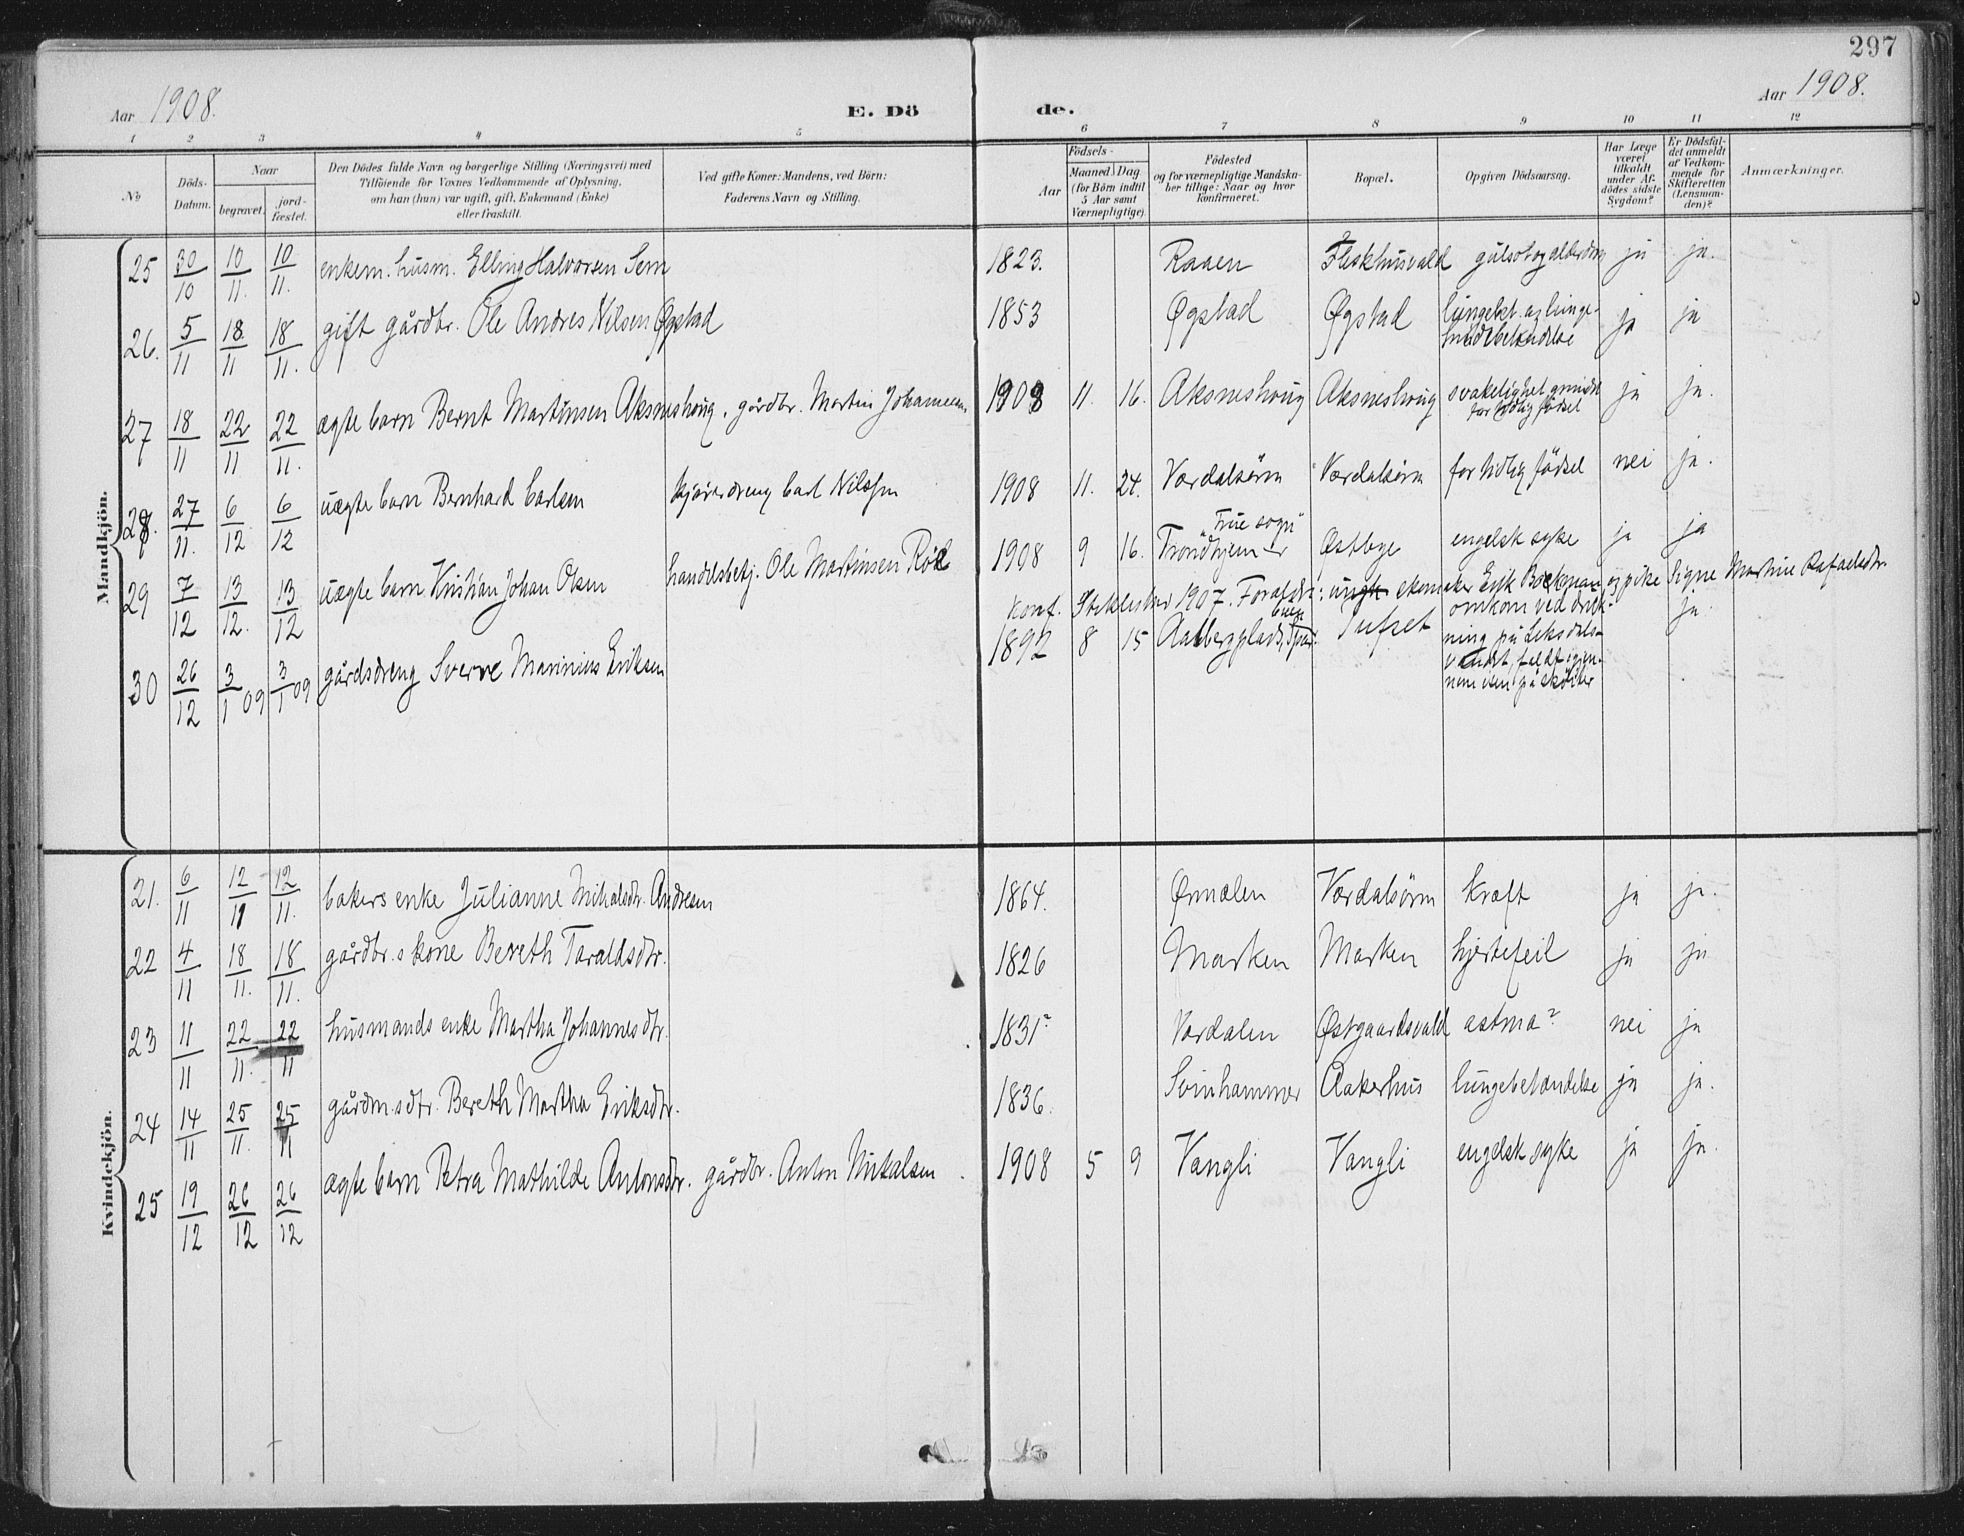 297
Aar 1908.
E. Dö de.
Aar 1908.
1 2 3 4 5 6 7 8 9 10 11 12
No
Döds-Datum.
Naar
begravet.
jord-fæstet.
Den Dödes fulde Navn og borgerlige Stilling (Næringsvei) med
Tilföiende for Voxnes Vedkommende af Oplysning,
om han (hun) var ugift, gift, Enkemand (Enke)
eller fraskilt.
Ved gifte Koner: Mandens, ved Börn:
Faderens Navn og Stilling.
Födsels-
Aar
Maaned Dag
(for Börn indtil
5 Aar samt
Værnepligtige)
Födested
og for værnepligtige Mandska-
ber tillige: Naar og hvor
konfirmeret.
Bopæl.
Opgiven Dödsaarsag.
Har Læge
været
tilkaldt
under Af-
dödes sidste
Sygdom?
Er Dödsfal-
det anmeldt
af Vedkom-
mende for
Skifteretten
(Lensman-
den)?
Anmærkninger.
Mandkjön.
25 30/10 10/11. 10/11. enkem. husm. Elling Halvorsen Sem 1823. Raaen Fleskhusvald gulsot og alderdom ja ja.
26. 5/11 18/11 18/11. gift gårdbr. Ole Andres Nilsen Øgstad 1853 Øgstad Øgstad lungebet. og lunge- ja ja
27 18/11 22/11 22/11. ægte barn Bernt Martinsen Aksneshoug, gårdbr. Martin Johannesen 1908 11. 16. Aksneshoug Aksneshoug svakelighet grundet ja ja.
for tidlig fødsel
28. 27/11. 6/12 6/12 uægte barn Bernhard Carlsen kjøredreng Carl Nilssen 1908 11. 24. Værdalsøren Værdalsøren for tidlig fødsel nei ja.
29 7/12 13/12. 13/12 uægte barn Kristian Johan Olsen handelsbetj. Ole Martinsen Røe 1908 9 16. Trondhjem Frue sogn Østbye engelsk syke ja ja
konf. Stiklestad 1907. Foræld.: skomaker Erik Bockman og pike Signe Martine Rafaelsdtr.
30 26/12 3/1 09 3/1 09 gårdsdreng Sverre Marinius Eriksen 1892 8 15 Aalbergplads, Spar. Tufset omkom ved druk- ja.
ning på Leksdals-
vandet, faldt igjen-
nem isen på skøiter
Kvindekjön.
21. 6/11 12/11 12/11. bakers enke Julianne Mikalsdtr. Andresen 1864. Ørmælen Værdalsøren kræft ja ja.
22 4/11 18/11. 18/11. gårdbr.s kone Bereth Taraldsdtr. 1826 Marken Marken hjertefeil ja ja
23 11/11 22/11. 22/11 husmands enke Martha Johannesdtr. 1831? Værdalen Østgaardsvald astma? nei ja
24 14/11 25/11. 25/11 gårdm.sdtr. Bereth Martha Eriksdtr. 1836. Svinhammer Aakerhus lungebetændelse ja ja.
25 19/12 26/12 26/12 ægte barn Petra Mathilde Antonsdtr. gårdbr. Anton Mikalsen 1908 5 9 Vangli Vangli engelsk syke ja ja.